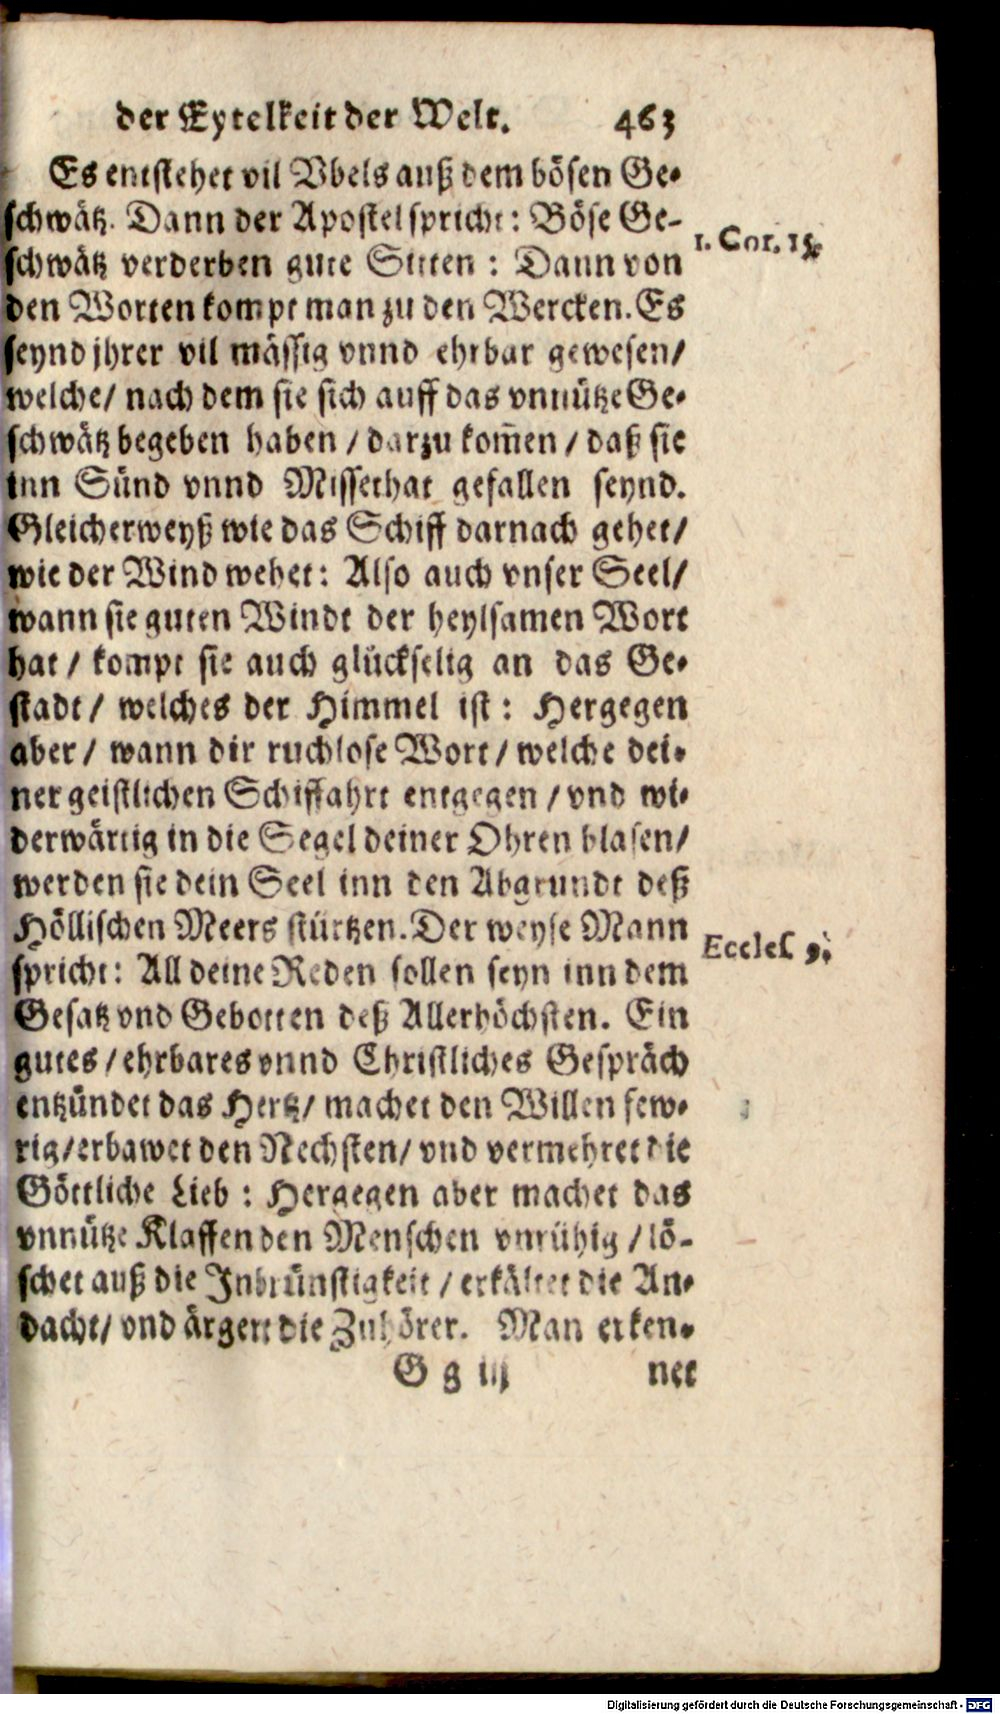 der Eytelkeit der Welt. 463
Es entstehet vil Vbels auß dem bösen Ge-
schwätz. Dann der Apostel spricht: Böse Ge-
schwätz verderben gute Sitten: Dann von
den Worten kompt man zu den Wercken. Es
seynd jhrer vil mässig vnnd ehrbar gewesen/
welche/ nach dem sie sich auff das vnnütze Ge-
schwätz begeben haben / darzu kom̄en / daß sie
inn Sünd vnnd Missethat gefallen seynd.
Gleicherweyß wie das Schiff darnach gehet/
wie der Wind wehet: Also auch vnser Seel/
wann sie guten Windt der heylsamen Wort
hat / kompt sie auch glückselig an das Ge-
stadt / welches der Himmel ist: Hergegen
aber / wann dir ruchlose Wort / welche dei-
ner geistlichen Schiffahrt entgegen / vnd wi-
derwärtig in die Segel deiner Ohren blasen/
werden sie dein Seel inn den Abgrundt deß
Höllischen Meers stürtzen. Der weyse Mann
spricht: All deine Reden sollen seyn inn dem
Gesatz vnd Gebotten deß Allerhöchsten. Ein
gutes / ehrbares vnnd Christliches Gespräch
entzündet das Hertz/ machet den Willen few-
rig/ erbawet den Nechsten/ vnd vermehret die
Göttliche Lieb : Hergegen aber machet das
vnnütze Klaffen den Menschen vnrühig / lö-
schet auß die Inbrünstigkeit / erkältet die An-
dacht/ vnd ärgert die Zuhörer. Man erken-
G g iij net
1. Cor. 15.
Eccles. 9.
Digitalisierung gefördert durch die Deutsche Forschungsgemeinschaft - DFG